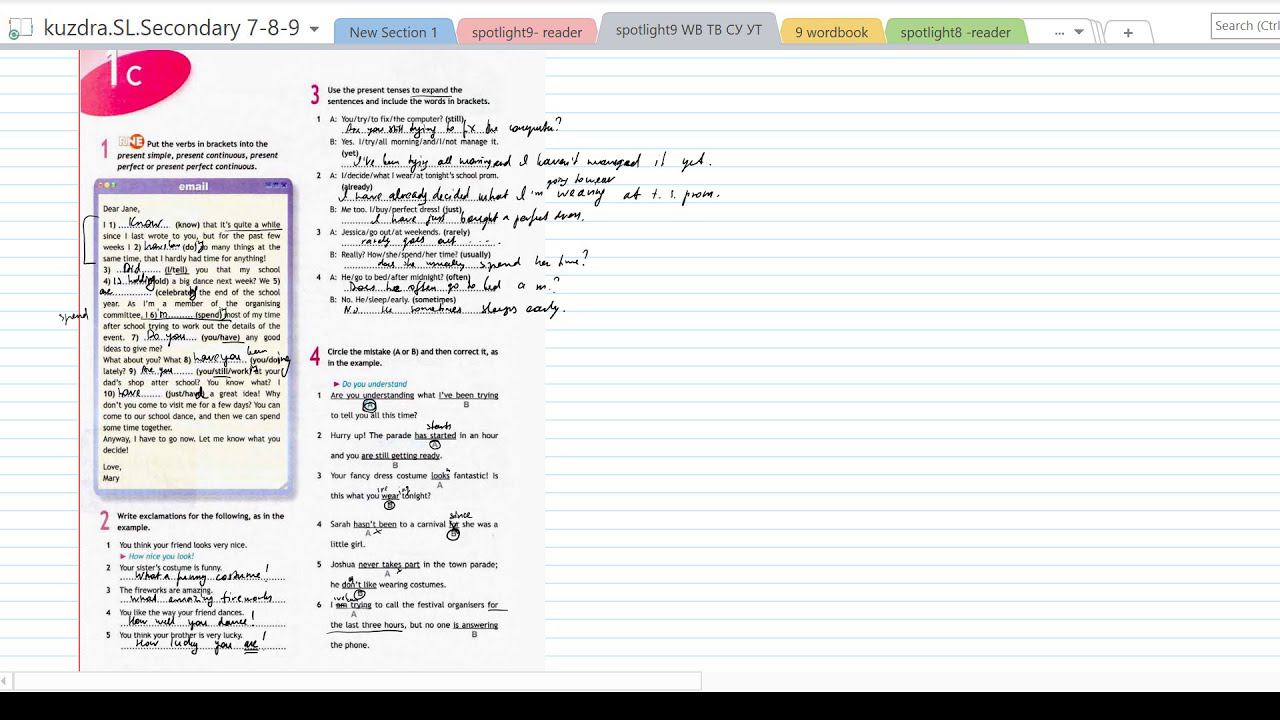 kuzdra.SL.Secondary 7-8-9
New Section 1
spotlight9- reader
spotlight9 WB TB СУ УТ
9 wordbook
spotlight8 -reader
...
+
Search (Ctrl
1c
1 Put the verbs in brackets into the
present simple, present continuous, present
perfect or present perfect continuous.
email
Dear Jane,
I 1) know (know) that it's quite a while
since I last wrote to you, but for the past few
weeks I 2) (do) so many things at the
same time, that I hardly had time for anything!
3) Did (I/tell) you that my school
4) is holding (hold) a big dance next week? We 5)
are (celebrate) the end of the school
year. As I'm a member of the organising
committee, I 6) m (spend) most of my time
spend
after school trying to work out the details of the
event. 7) Do you (you/have) any good
ideas to give me?
What about you? What 8) have you been (you/doing
lately? 9) Are you (you/still/work) at your
dad's shop after school? You know what? I
10) have (just/have) a great idea! Why
don't you come to visit me for a few days? You can
come to our school dance, and then we can spend
some time together.
Anyway, I have to go now. Let me know what you
decide!
Love,
Mary
2 Write exclamations for the following, as in the
example.
1 You think your friend looks very nice.
► How nice you look!
2 Your sister's costume is funny.
What a funny costume!
3 The fireworks are amazing.
What amazing fireworks
4 You like the way your friend dances.
How well you dance!
5 You think your brother is very lucky.
How lucky you are!
3 Use the present tenses to expand the
sentences and include the words in brackets.
1 A: You/try/to fix/the computer? (still)
Are you still trying to fix the computer?
B: Yes. I/try/all morning/and/I/not manage it.
(yet)
I've been trying all morning and I haven't managed it yet.
2 A: I/decide/what I/wear/at tonight's school prom.
(already)
going to wear
I have already decided what I'm wearing at t. s. prom.
B: Me too. I/buy/perfect dress! (just)
I have just bought a perfect dress.
3 A: Jessica/go out/at weekends. (rarely)
rarely goes out
B: Really? How/she/spend/her time? (usually)
does she usually spend her time?
4 A: He/go to bed/after midnight? (often)
Does he often go to bed a m?
B: No. He/sleep/early. (sometimes)
No. He sometimes sleeps early.
4 Circle the mistake (A or B) and then correct it, as
in the example.
► Do you understand
1 Are you understanding what I've been trying
A B
to tell you all this time?
starts
2 Hurry up! The parade has started in an hour
A
and you are still getting ready.
B
3 Your fancy dress costume looks fantastic! Is
A
this what you wear tonight?
B
since
4 Sarah hasn't been to a carnival for she was a
A B
little girl.
5 Joshua never takes part in the town parade;
A
he don't like wearing costumes.
B
6 I am trying to call the festival organisers for
A
the last three hours, but no one is answering
B
the phone.